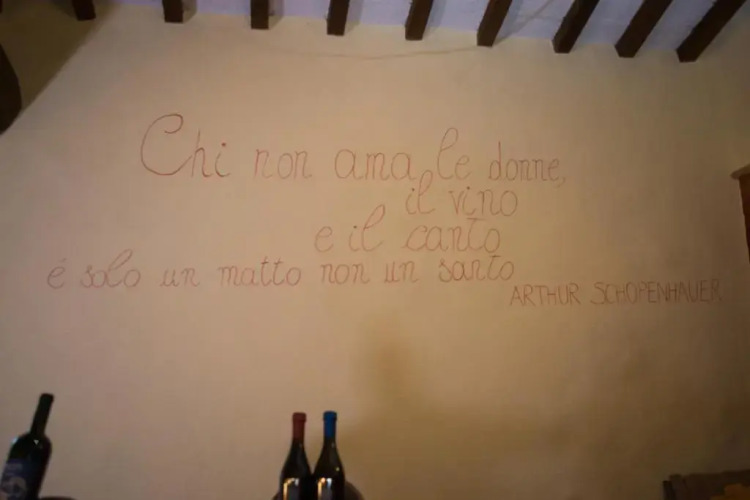 Chi non ama le donne,
il vino
e il canto
é solo un matto non un santo
ARTHUR SCHOPENHAUER